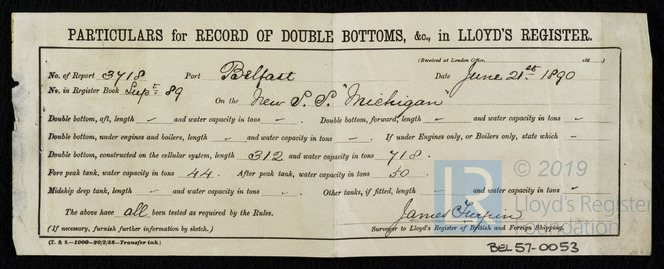 PARTICULARS for RECORD OF DOUBLE BOTTOMS, &c., in LLOYD'S REGISTER.
(Received at London Office, 188 )
No. of Report 3718 Port Belfast Date June 21st 1890
No. in Register Book Supt 89 On the New S.S. "Michigan"
Double bottom, aft, length — and water capacity in tons — Double bottom, forward, length — and water capacity in tons —
Double bottom, under engines and boilers, length — and water capacity in tons — If under Engines only, or Boilers only, state which —
Double bottom, constructed on the cellular system, length 312 and water capacity in tons 718.
Fore peak tank, water capacity in tons 44. After peak tank, water capacity in tons 50
Midship deep tank, length — and water capacity in tons — Other tanks, if fitted, length — and water capacity in tons —
The above have all been tested as required by the Rules.
James Turpin
(If necessary, furnish further information by sketch.) Surveyor to Lloyd's Register of British and Foreign Shipping.
(T. & S.—1000—30/3/88—Transfer ink.)
BEL57-0053
LR © 2019
Lloyd's Register
Foundation